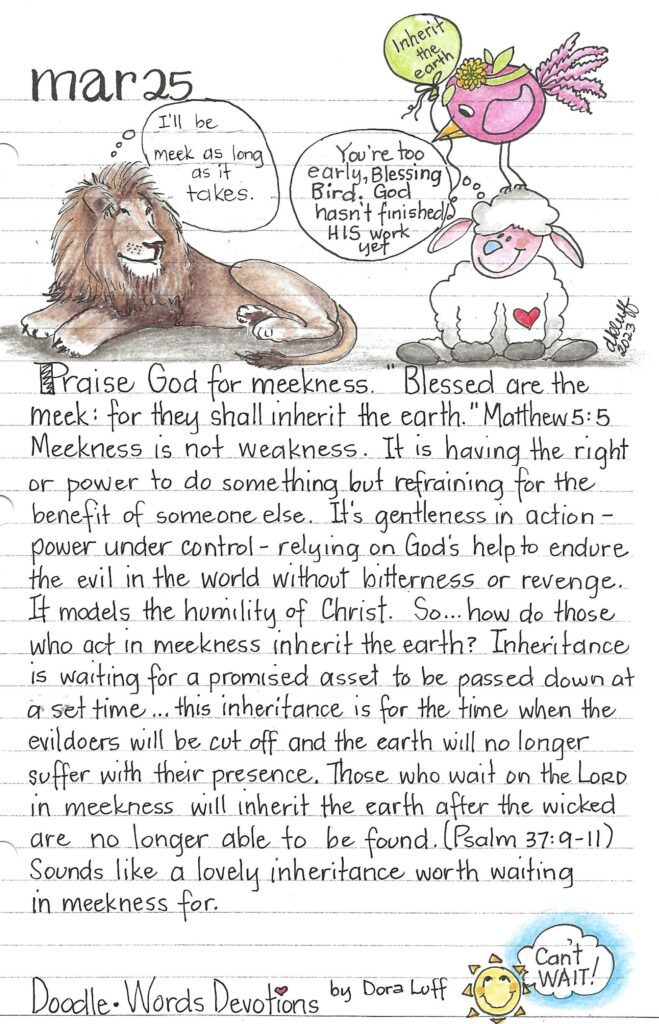 mar 25
Inherit
the
earth
I'll be
meek as long
as it
takes.
You're too
early, Blessing
Bird. God
hasn't finished
HIS work
yet
dkluff
2023
Praise God for meekness. "Blessed are the
meek: for they shall inherit the earth." Matthew 5:5
Meekness is not weakness. It is having the right
or power to do something but refraining for the
benefit of someone else. It's gentleness in action -
power under control - relying on God's help to endure
the evil in the world without bitterness or revenge.
It models the humility of Christ. So... how do those
who act in meekness inherit the earth? Inheritance
is waiting for a promised asset to be passed down at
a set time... this inheritance is for the time when the
evildoers will be cut off and the earth will no longer
suffer with their presence. Those who wait on the LORD
in meekness will inherit the earth after the wicked
are no longer able to be found. (Psalm 37:9-11)
Sounds like a lovely inheritance worth waiting
in meekness for.
Can't
WAIT!
Doodle • Words Devotions by Dora Luff